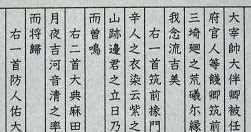 大宰帥大伴卿被任
府官人等餞卿筑前
三埼廻之荒礒尓縁
我念流吉美
右一首筑前掾門
辛人之衣染云紫之
山跡邊君之立日乃
而曽鳴
右二首大典麻田
月夜吉河音清之率
而将歸
右一首防人佑大